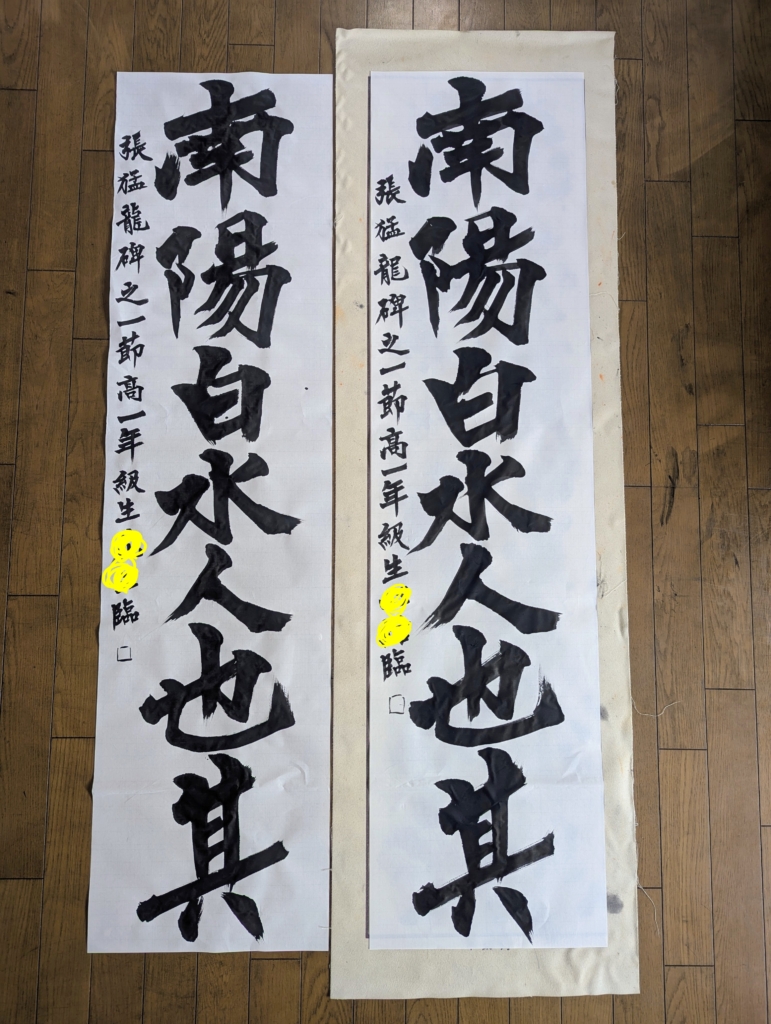 南陽白水人也其
張猛龍碑之一節高一年級生
臨
南陽白水人也其
張猛龍碑之一節高一年級生
臨